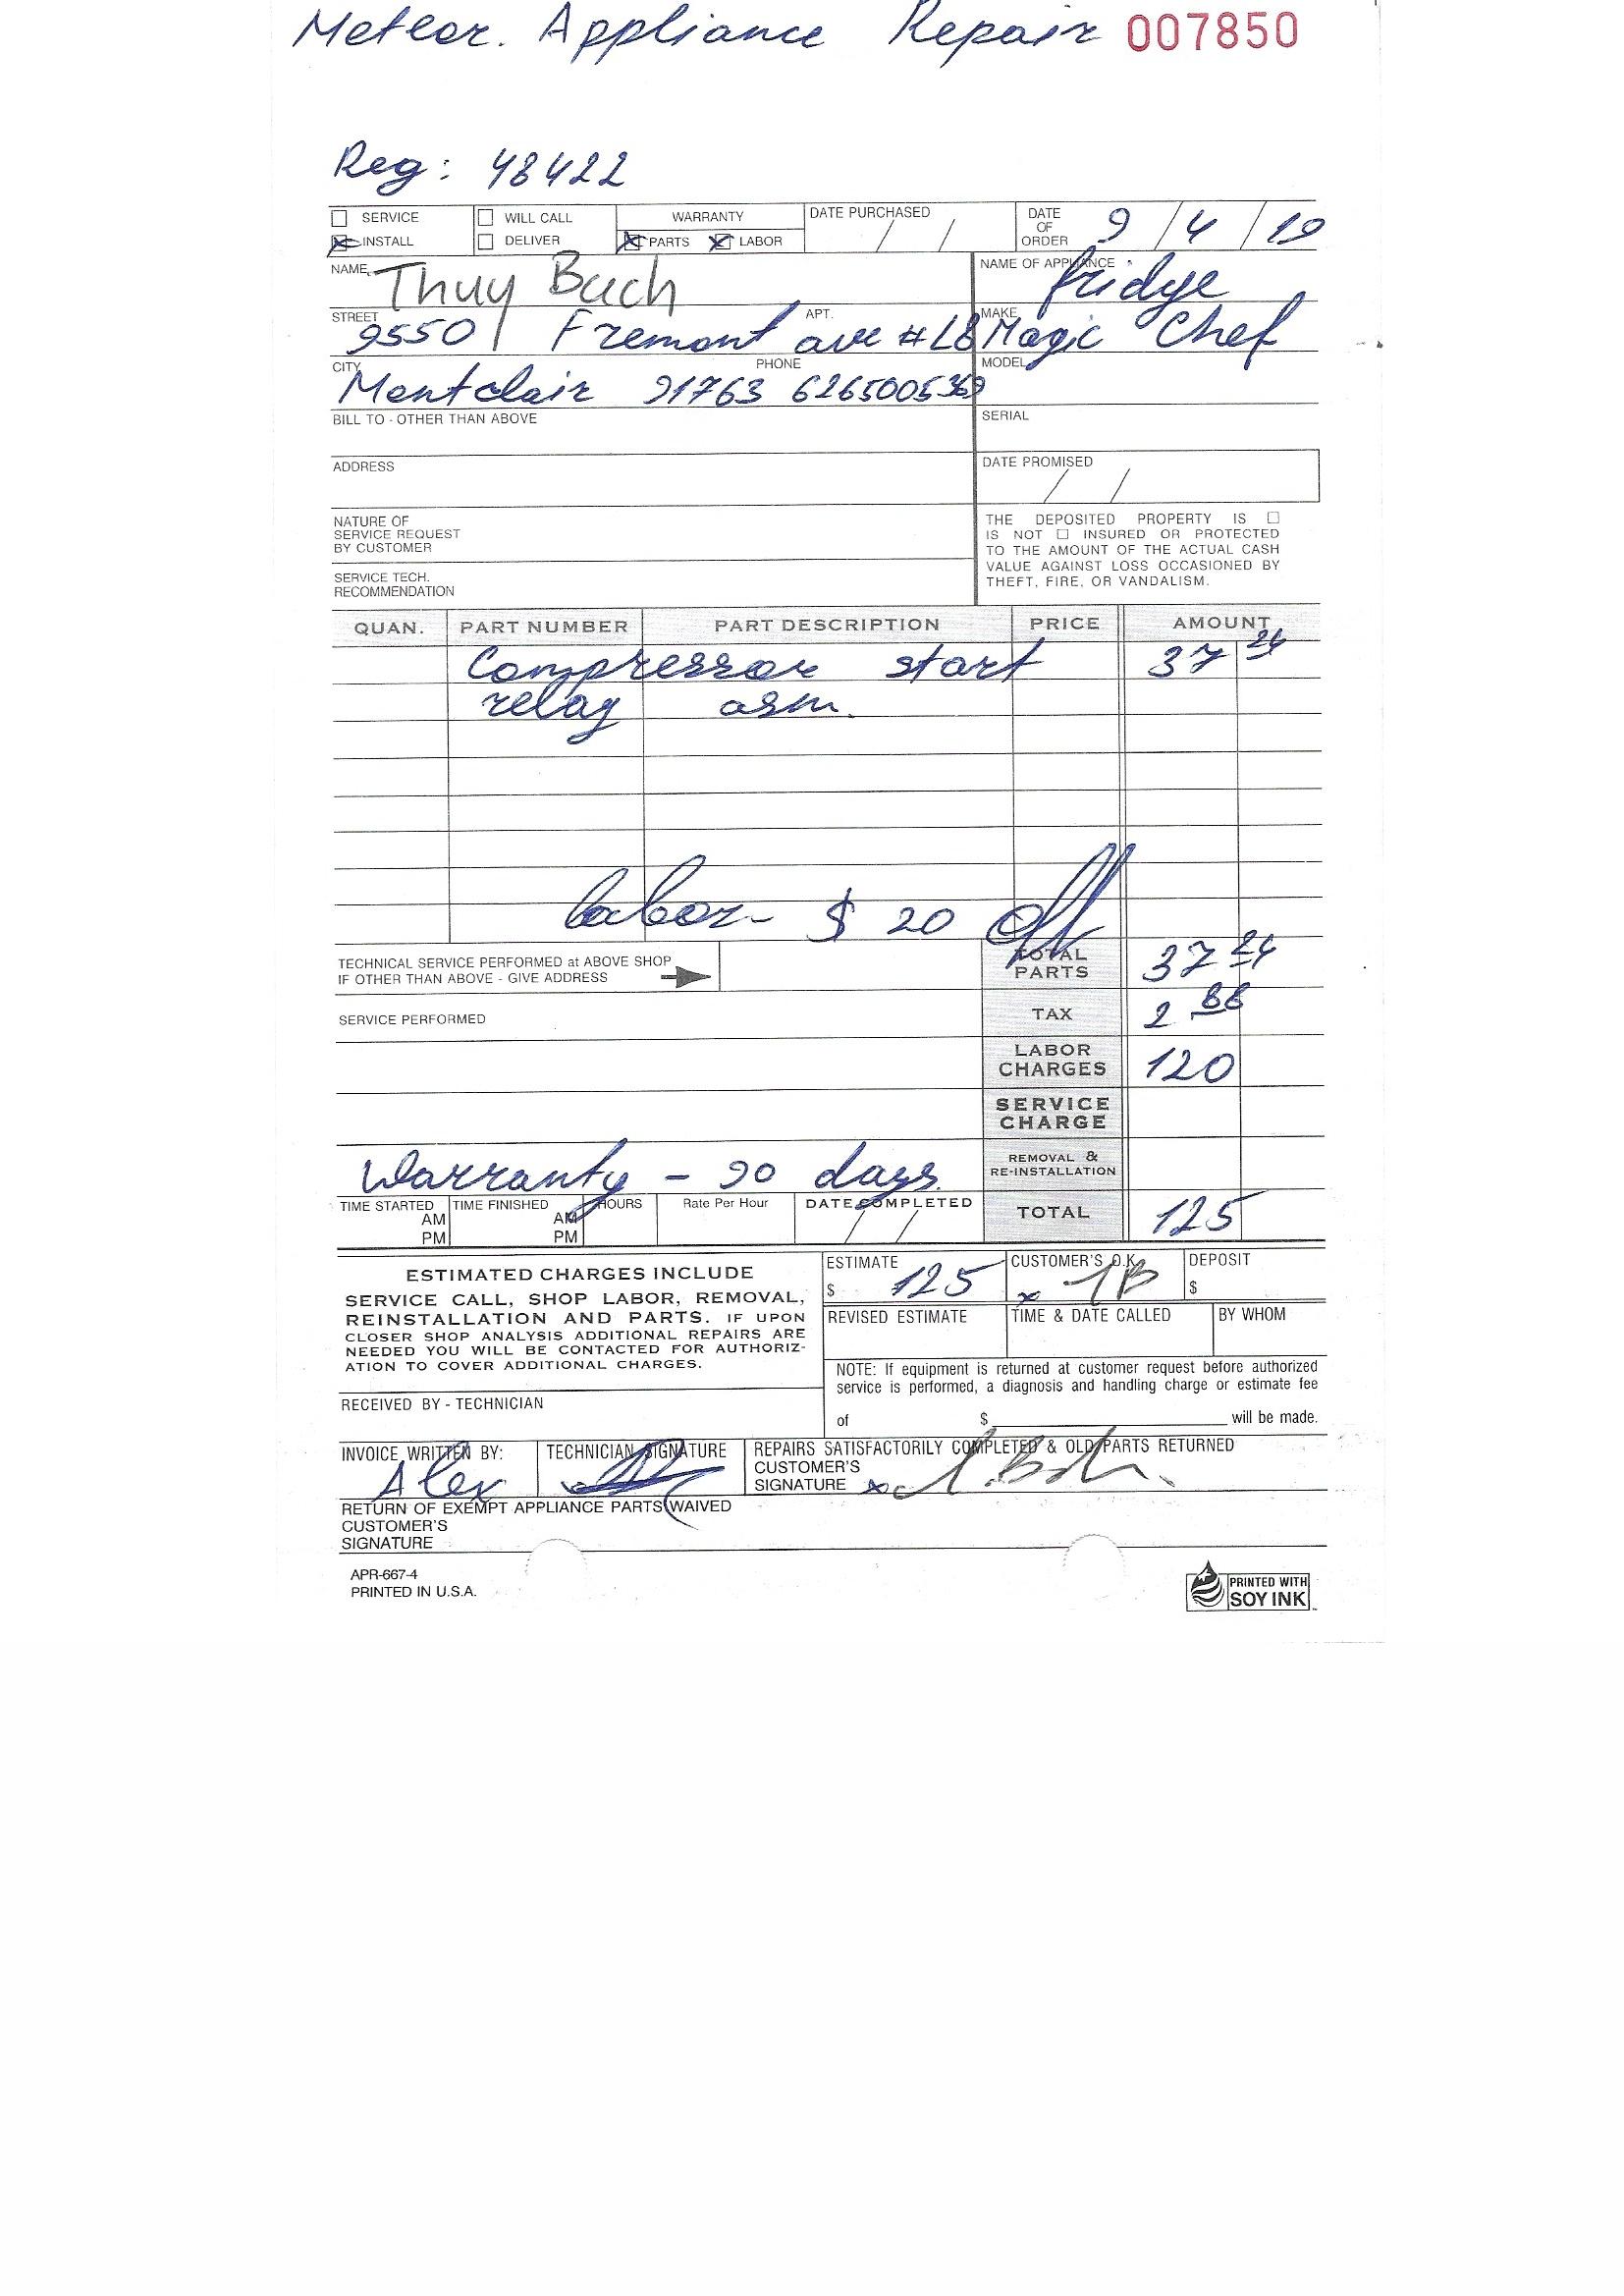 Meteor. Appliance Repair 007850
Reg: 48422
SERVICE WILL CALL WARRANTY DATE PURCHASED / / DATE OF ORDER 9 / 4 / 19
INSTALL DELIVER PARTS LABOR
NAME Thuy Bach NAME OF APPLIANCE fridge
STREET 9550 Fremont ave APT. #L8 MAKE Magic Chef
CITY Montclair 91763 PHONE 6265005369 MODEL
BILL TO - OTHER THAN ABOVE SERIAL
ADDRESS DATE PROMISED / /
NATURE OF
SERVICE REQUEST
BY CUSTOMER
SERVICE TECH.
RECOMMENDATION
THE DEPOSITED PROPERTY IS
IS NOT INSURED OR PROTECTED
TO THE AMOUNT OF THE ACTUAL CASH
VALUE AGAINST LOSS OCCASIONED BY
THEFT, FIRE, OR VANDALISM.
QUAN. PART NUMBER PART DESCRIPTION PRICE AMOUNT
Compressor start 37 24
relay asm.
labor- $ 20 off
TECHNICAL SERVICE PERFORMED at ABOVE SHOP
IF OTHER THAN ABOVE - GIVE ADDRESS
TOTAL PARTS 37 24
SERVICE PERFORMED TAX 2 88
LABOR CHARGES 120
SERVICE CHARGE
Warranty - 90 days REMOVAL & RE-INSTALLATION
TIME STARTED AM PM TIME FINISHED AM PM HOURS Rate Per Hour DATE COMPLETED / / TOTAL 125
ESTIMATED CHARGES INCLUDE
SERVICE CALL, SHOP LABOR, REMOVAL,
REINSTALLATION AND PARTS. IF UPON
CLOSER SHOP ANALYSIS ADDITIONAL REPAIRS ARE
NEEDED YOU WILL BE CONTACTED FOR AUTHORIZ-
ATION TO COVER ADDITIONAL CHARGES.
ESTIMATE $ 125 CUSTOMER'S O.K. x TB DEPOSIT $
REVISED ESTIMATE TIME & DATE CALLED BY WHOM
NOTE: If equipment is returned at customer request before authorized
service is performed, a diagnosis and handling charge or estimate fee
of $ will be made.
RECEIVED BY - TECHNICIAN
INVOICE WRITTEN BY: Alex TECHNICIAN SIGNATURE REPAIRS SATISFACTORILY COMPLETED & OLD PARTS RETURNED
CUSTOMER'S
SIGNATURE x
RETURN OF EXEMPT APPLIANCE PARTS WAIVED
CUSTOMER'S
SIGNATURE
APR-667-4
PRINTED IN U.S.A.
PRINTED WITH
SOY INK